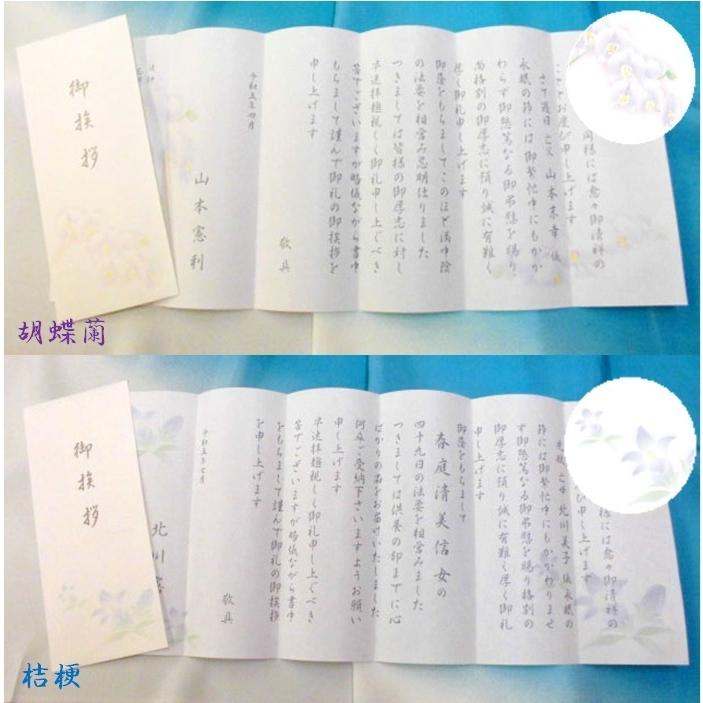 御挨拶
同様には愈々御清祥の
こととお慶び申し上げます
さて過日 亡父 山本末幸 儀
永眠の節には御繁忙中にもかか
わらず御懇篤なる御弔慰を賜り、
尚格別の御厚志に預り誠に有難く
厚く御礼申し上げます
御蔭をもちましてこのほど満中陰
の法要を相営み忌明仕りました
つきましては皆様の御厚志に対し
早速拝趨親しく御礼申し上ぐべき
筈でございますが略儀ながら書中
をもちまして謹んで御礼の御挨拶を
申し上げます
敬具
令和五年四月
山本憲利
胡蝶蘭
御挨拶
様には愈々御清祥の
び申し上げます
亡母 北川美子 儀 永眠の
節には御繁忙中にもかかわりませ
ず御懇篤なる御弔慰を賜り格別の
御厚志に預り誠に有難く厚く御礼
申し上げます
御蔭をもちまして
春庭清美信女の
四十九日の法要を相営みました
つきましては供養の印までに心
ばかりの品をお届けいたしました
何卒ご受納下さいますようお願い
申し上げます
早速拝趨親しく御礼申し上ぐべき
筈でございますが略儀ながら書中
をもちまして謹んで御礼の御挨拶
を申し上げます
敬具
令和五年七月
北川
桔梗